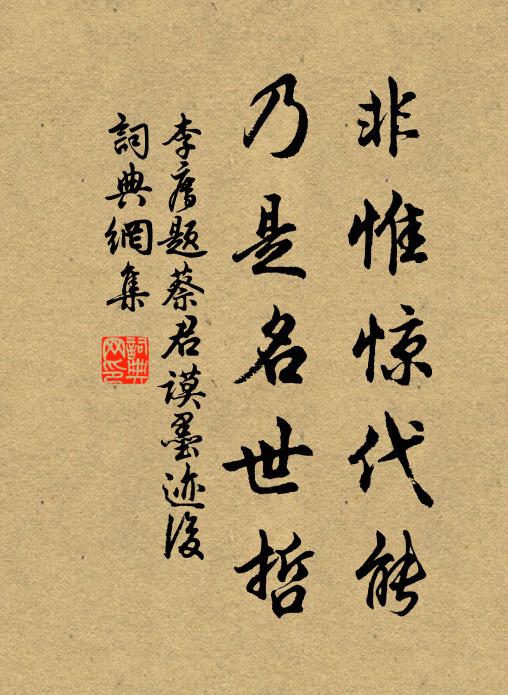 非惟惊代能
乃是名世哲
李䧹题蔡君谟墨迹後
詞典網集
詞典网印